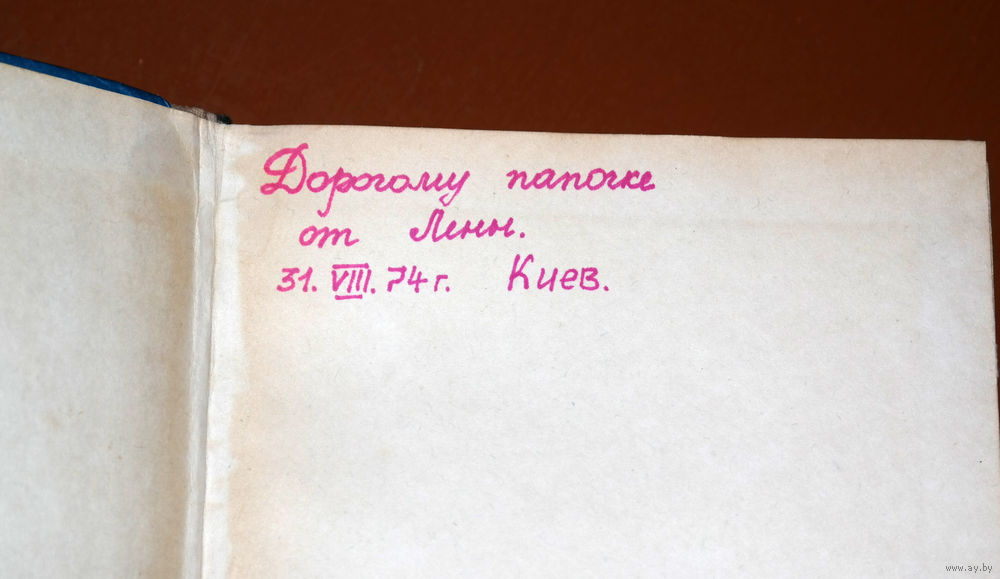 Дорогому папочке
от Лены.
31. VIII. 74 г. Киев.
www.ay.by